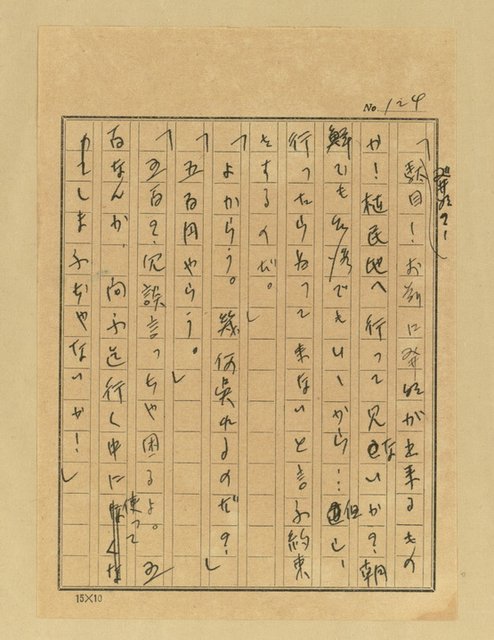 No. 124
「駄目！お前に発明が出来るもの
か！植民地へ行って見ないか？朝
鮮でも台湾でもいゝから…但し、
行ったら帰って来ないと言ふ約束
をするのだ。」
「よからう。幾何呉れるのだ？」
「五百円やらう。」
「五百？冗談言っちや困るよ。五
百なんか、向ふに行く中に使って
しまふぢやないか！」
15×10